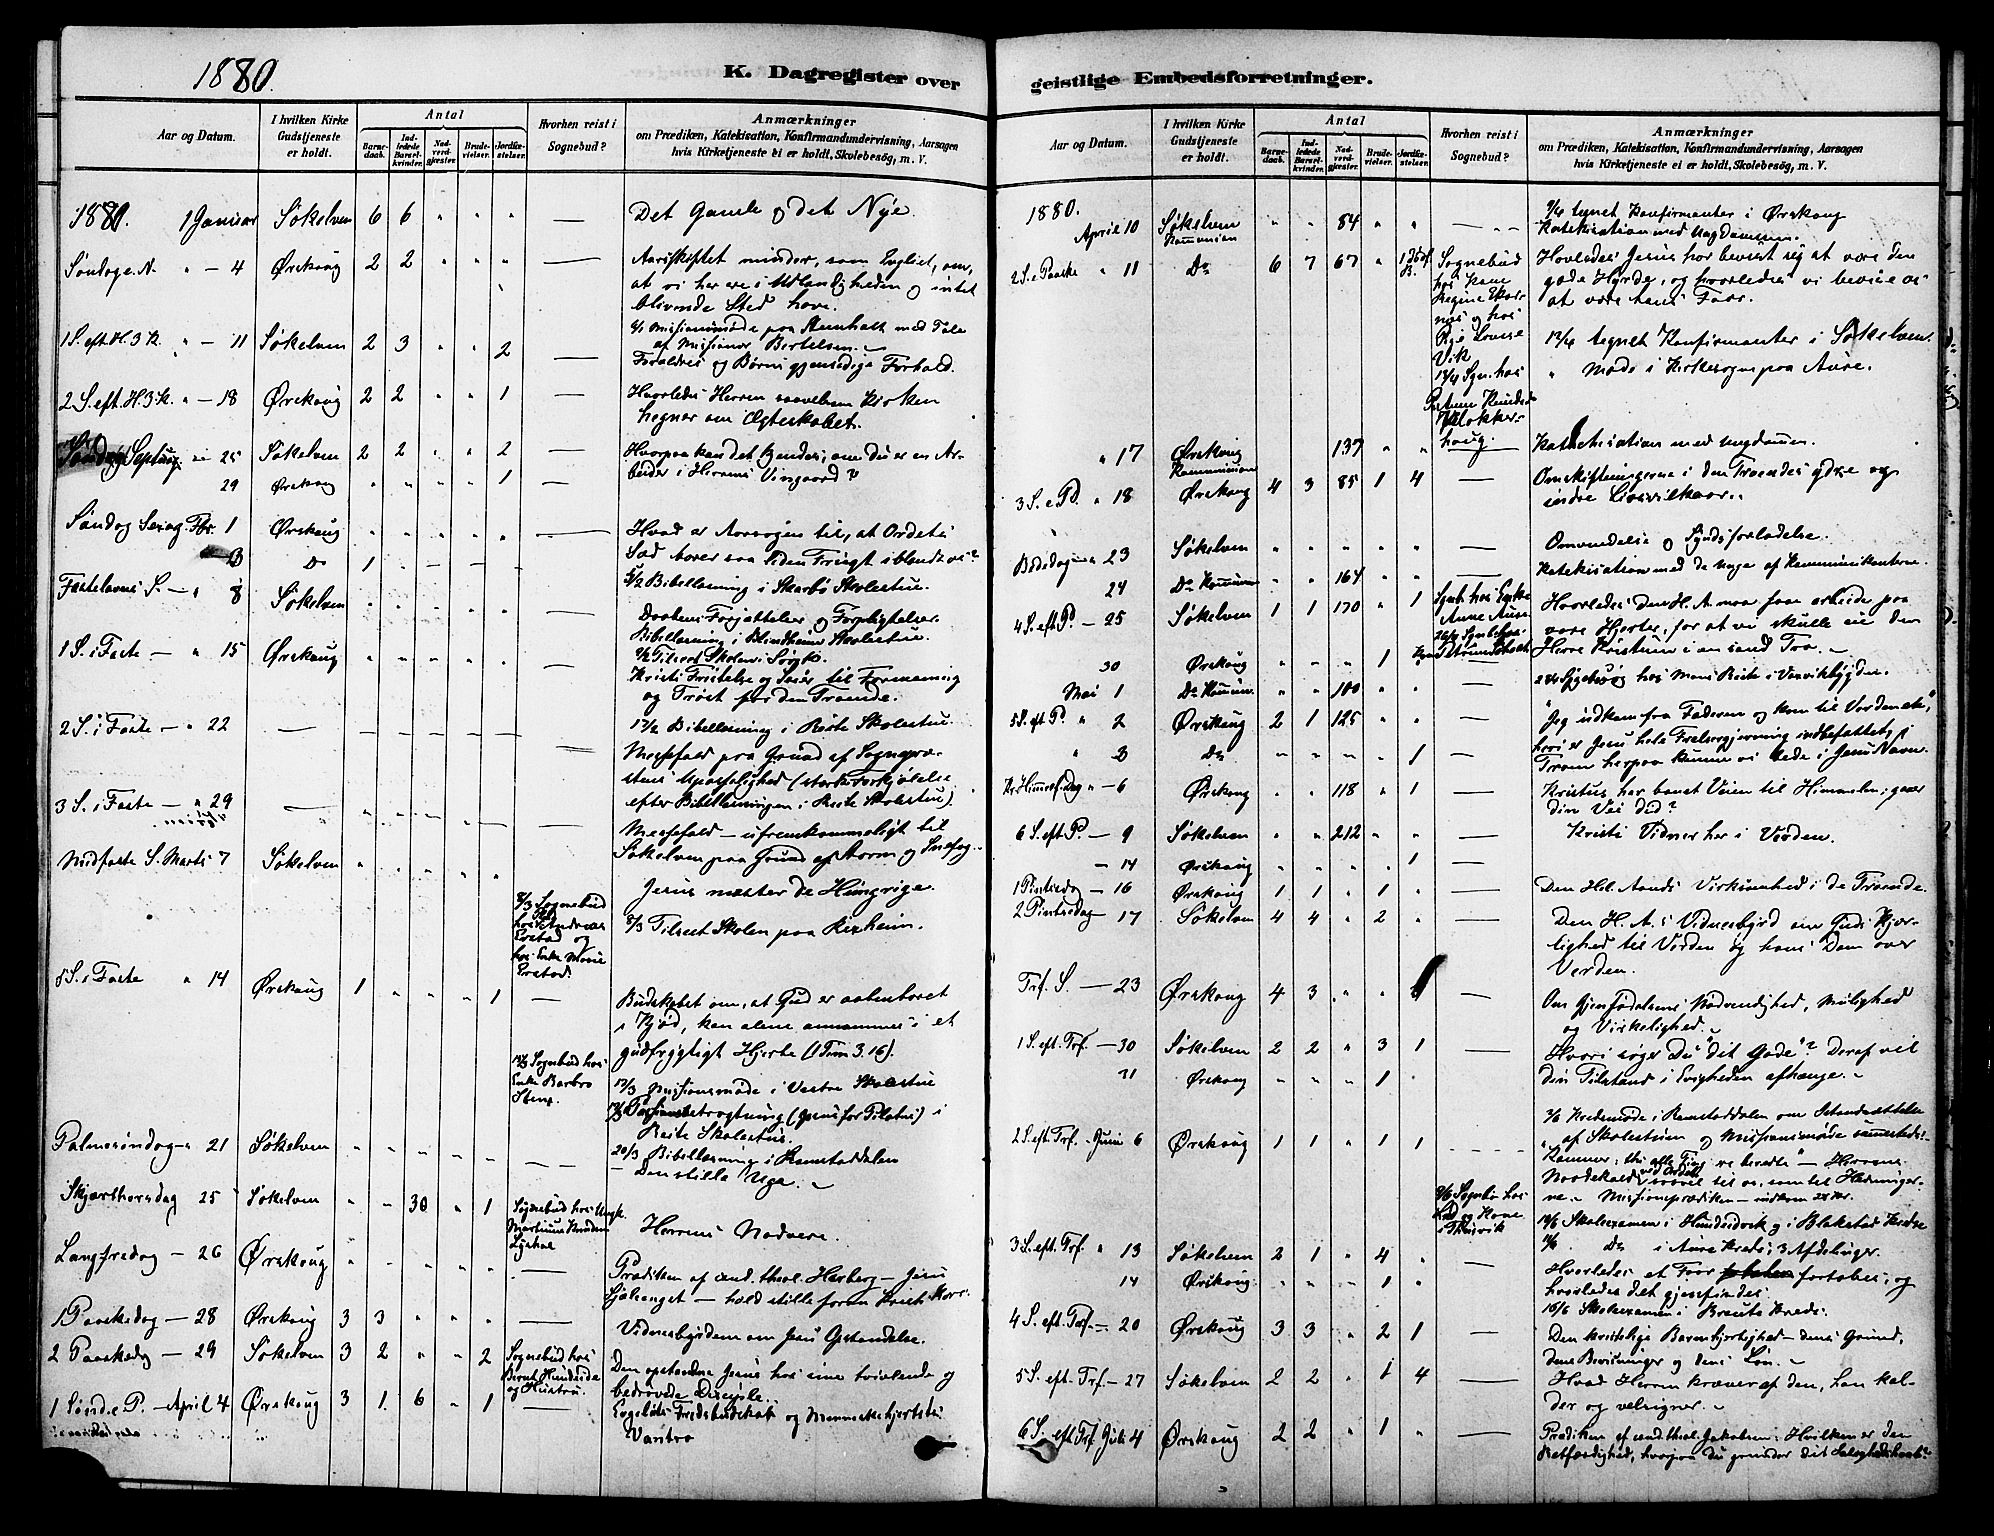 1880.
K. Dagregister over
Aar og Datum.
I hvilken Kirke Gudstjeneste er holdt.
Antal
Barnedaab.
Indledede Barselkvinder.
Nadverdgjester.
Brudevielser.
Jordfæstelser.
Hvorhen reist i Sognebud?
Anmærkninger
om Prædiken, Katekisation, Konfirmandundervisning, Aarsagen
hvis Kirketjeneste ei er holdt, Skolebesög, m. V.
1880. 1 Januar Søkelven 6 6 " " " — Det Gamle og det Nye.
Søndag e. N. " — 4 Ørskoug 2 2 " " " — Aarsskiftet minder, som Engliet, om,
at vi her ere i Udlændigheden og intet
blivende Sted have.
1 S. eft. H. 3 K. " — 11 Søkelven 2 3 " " 2 — Missionsmøde paa med Tale
af Missionær Bertelsen.
Forældres og Børns gjensidige Forhold.
2 S. eft. H. 3 K. " — 18 Ørskoug 2 2 " " 1 — Hvorledes Herren saavelsom Kirken
hegner om Ægteskabet.
Søndag Septuag. " — 25 Søkelven 2 2 " " 2 — Hvorpaa kan det kjendes, om du er en Ar-
beider i Herrens Vingaard?
29 Ørskoug " " " " 1 —
Søndag Sexag. Fbr. 1 Ørskoug " " " " " — Hvad er Aarsagen til, at Ordets
Sæd bærer saa liden Frugt iblandt os?
3 Do 1 — " — —
Fastelavns S. — " 8 Søkelven " " " " " — Bibellæsning i Skarbø Skolestue.
Daabens Forjættelser og Forpligtelser.
Bibellæsning i Blindheim Skolestue.
1 S. i Faste — " 15 Ørskoug " " " " " — Tilseet Skolen i
Kristi Fristelse og Seier til Formaning
og Trøst for den Troende.
2 S. i Faste — " 22 — — — — — — 17/2 Bibellæsning i Reite Skolestue.
Messefald paa Grund af Sognepræ-
stens Upasselighed (stærk Forkjølelse
efter Bibellæsningen i Reite Skolestue).
3 S. i Faste — " 29 — " " " " " — Messefald — ufremkommeligt til
Søkelven paa Grund af Storm og Snefog.
Midfaste S. Marts 7 Søkelven " " " " " Jesus mætter de Hungrige.
8/3 Sognebud
hos Andreas
Erstad og
hos Enke Marie
Erstad.
8/3 Tilseet Skolen paa Rexheim.
5 S. i Faste " 14 Ørskoug 1 " " " 1 — Budskabet om, at Gud er aabenbaret
i Kjød, kan alene annammes i et
gudfrygtigt Hjerte (1 Tim 3.16).
Sognebud hos
Enke Barbro
17/3 Missionsmøde i Vestre Skolestue
Passionsbetragtning (Jesus for Pilatus) i
Reite Skolestue.
20/3 Bibellæsning i Ramstaddalen
Palmesøndag — " 21 Søkelven " " " " " — Den stille Uge. —
Skjærthorsdag 25 Søkelven " " 30 " 1 Sognebud hos Ungk.
Martinus Knudsen
Herrens Nadvere.
Langfredag — 26 Ørskoug " " " " " — Prædiken af cand. theol. Herberg — Jesu
— hold stille foran Kristi Kors.
1 Paaskedag — 28 Ørskoug 3 3 " " " — Vidnesbyrdene om Jesu Opstandelse.
2 Paaskedag — 29 Søkelven 3 2 " " 2 Sognebud hos
Bernt Hundeide
og Hustru.
Den opstandne Jesus hos sine tvivlende og
bedrøvede Disciple.
1 Sønd. e. P. — April 4 Ørskoug 3 1 6 " 1 — Englelets Fredsbudskab og Menneskehjertets
Vantro
geistlige Embedsforretninger.
Aar og Datum.
I hvilken Kirke Gudstjeneste er holdt.
Antal
Barnedaab.
Indledede Barselkvinder.
Nadverdgjester.
Brudevielser.
Jordfæstelser.
Hvorhen reist i Sognebud?
Anmærkninger
om Prædiken, Katekisation, Konfirmandundervisning, Aarsagen
hvis Kirketjeneste ei er holdt, Skolebesög, m. V.
1880.
April 10 Søkelven Kommunion " " 84 " " — 9/4 tegnet Konfirmanter i Ørskoug
Katekisation med Ungdommen.
2 S. e. Paaske " 11 Do 6 7 67 " 1 Sognebud
hos Kone
Regine
og hos
Pige Lovise
Vik
13/4 Sgn. hos
Knuds
Klokker-
houg.
Hvorledes Jesus har bevist sig at være den
gode Hyrde, og hvorledes vi bevise os
at være hans Faar.
12/4 tegnet Konfirmanter i Søkelven.
" Møde i Kirkesogn paa Aure.
" 17 Ørskoug Kommunion 139 " " — Katekisation med Ungdommen.
3 S. e. P. " 18 Ørskoug 4 3 85 1 4 — Omskiftningerne i den Troendes ydre og
indre Livsvilkaar.
Bededag — " 23 Søkelven " " " " " — Omvendelse og Syndsforladelse.
24 Do Kommun " " 164 " " Katekisation med de unge af Kommunikanterne.
4 S. eft P. — 25 Søkelven 1 1 170 " 1 Sgnb. hos Enke
Anne Aure
Hvorledes den H. A. maa faae arbeide paa
vore Hjerter, for at vi skulle eie den
Herre Kristum i en sand Tro. —
30 Ørskoug " " " 1 — Sygebesøg hos Mons Reite i
Mai 1 Do Kommun. " " 100 " "
5 S. eft P. " 2 Ørskoug 2 1 125 " " — "Jeg udkom fra Faderen og kom til Verden etc.,"
heri er Jesu hele Frelsergjerning indbefattet, i
Troen herpaa kunne vi bede i Jesu Navn.
" 3 Do " " " " 1 —
Kr. Himmelf. Dag " — 6 Ørskoug " " 118 " 1 — Kristus har banet Veien til Himmelen; gaar
din Vei did?
6 S. eft. P. — 9 Søkelven " " 212 " " — Kristi Vidner her i Verden.
— 14 Ørskoug " " " " 1 —
1 Pintsedag — 16 Ørskoug 1 1 " 1 " — Den Hel. Aands Virksomhed i de Troende.
2 Pintsedag — 17 Søkelven 4 4 " 2 " — Den H. A.s Vidnesbyrd om Guds Kjær-
lighed til Verden og hans Dom over
Verden.
Trf. S. — 23 Ørskoug 4 3 " " — Om Gjenfødelsens Nødvendighed, Mulighed
og Virkelighed. —
1 S. eft. Trf. — 30 Søkelven 2 2 " 3 1 — Hvori søger Du "dit Gode"? Deraf vil
din Tilstand i Evigheden afhænge. —
31 Ørskoug 1 "
Kredsmøde i Ramstaddalen om Istandsættelse
af Skolestuen og Missionsmøde sammesteds.
2 S. eft Trf. — Juni 6 Ørskoug 1 1 " 1 1 - - - - Kommer, thi alle Ting ere beredte" — Herrens
Naadekald ved Ordet saavel til os, som til Hedninger-
ne. — Missionsprædiken — indkom 28 Kr.
9/6 Sognebud hos
og Kone
i
Skoleexamen i Hundeidvik og i Blakstad Kreds
Do i Aure Kreds; 3 Afdelinger.
3 S. eft. Trf. " 13 Søkelven 2 1 " 4 " — Hvorledes et Faar fortabes, og
hvorledes det gjenfindes.
14 Ørskoug " " " 1 " — Skoleexamen i Brauts Kreds.
4 S. eft. Trf. — 20 Ørskoug 3 3 " 2 1 — Den kristelige Barmhjertighed — dens Grund,
dens Bevisninger og dens Løn. —
5 S. eft. Trf. — 27 Søkelven 2 2 " 1 4 — Hvad Herren kræver af den, han kal-
der og velsigner. —
6 S. eft Trf. Juli 4 Ørskoug 2 2 " 1 " — Prædiken af cand. theol. Jakobsen. Hvilken er den
Retfærdighed, hvorpaa du grunder dit Saligheds haab?